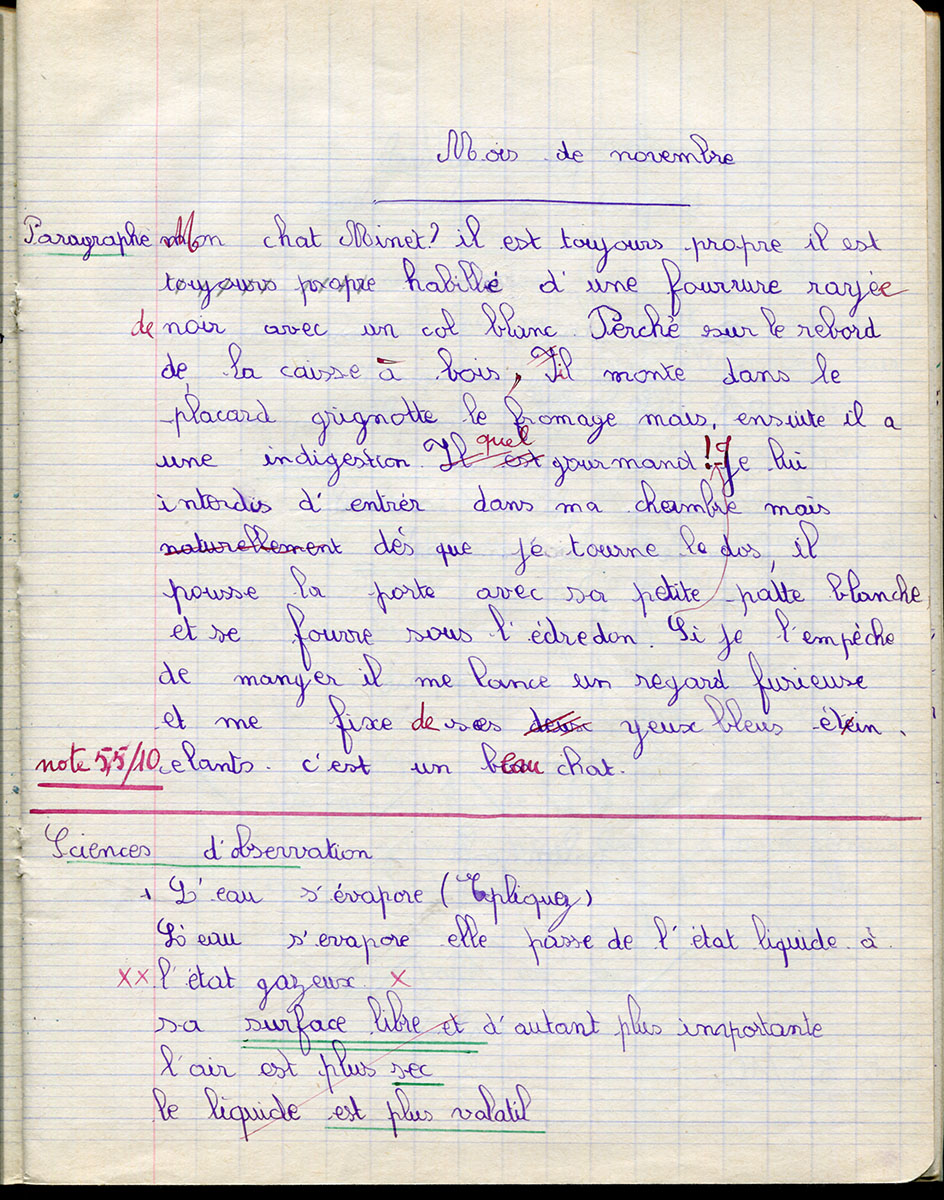 Mois de novembre
Paragraphe Mon chat Minet? il est toujours propre il est
toujours propre habillé d'une fourrure rayée
de noir avec un col blanc. Perché sur le rebord
de la caisse à bois, Il monte dans le
placard grignotte le fromage mais, ensuite il a
une indigestion. Il est quel gourmand! Je lui
interdis d'entrér dans ma chambre mais
naturellement dés que je tourne le dos, il
pousse la porte avec sa petite patte blanche
et se fourre sous l'édredon. Si je l'empéche
de manger il me lance un regard furieuse
et me fixe de ses deux yeux bleus étein.
note 5,5/10 celants. c'est un beau chat.
Sciences d'observation
L'eau s'évapore (Expliquez)
L'eau s'evapore elle passe de l'état liquide à
xx l'état gazeux x
sa surface libre et d'autant plus importante
l'air est plus sec
le liquide est plus valatil